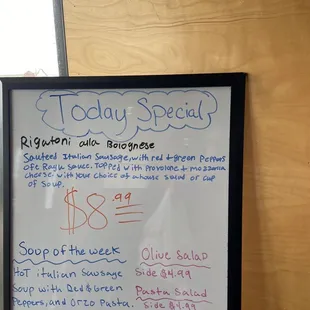 Today Special
Rigatoni alla Bolognese
Sauteed Italian Sausage, with red + green Peppers
Ragu sauce. Topped with provolone + mozzarella
cheese. with your choice of a house salad or cup
of soup.
$8.99
Soup of the week
HOT italian Sausage
Soup with Red & Green
Peppers, and Orzo Pasta.
Olive Salad
Side $4.99
Pasta Salad
Side $4.99